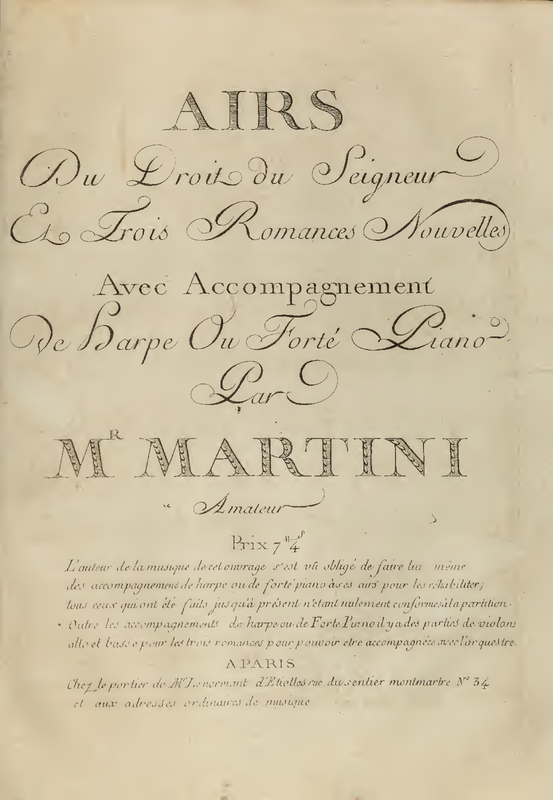 AIRS
Du Droit du Seigneur
Et Trois Romances Nouvelles
Avec Accompagnement
De harpe Ou Forté Piano
Par
Mr MARTINI
Amateur
Prix 7# 4s
L'auteur de la musique de cet ouvrage s'est vû obligé de faire lui même
des accompagnement de harpe ou de forte piano à ses airs pour les réhabiliter;
tous ceux qui ont été faits jusqu'à présent n'etant nulement conformes à la partition.
Outre les accompagnements de harpe ou de Forte Piano il y a des parties de violons
alto et basse pour les trois romances pour pouvoir etre accompagnées avec l'orquestre.
A PARIS
Chez le portier de Mr Lenormant d'Etiolles rue du sentier montmartre No 34
et aux adresses ordinaires de musique